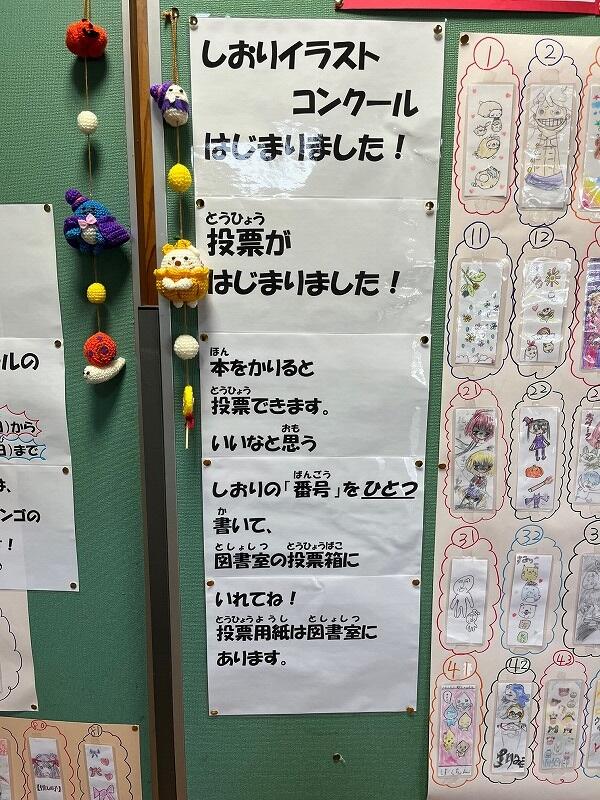 しおりイラスト
コンクール
はじまりました！
とうひょう
投票が
はじまりました！
ほん
本をかりると
とうひょう
投票できます。
おも
いいなと思う
ばんごう
しおりの「番号」をひとつ
か
書いて、
としょしつ とうひょうばこ
図書室の投票箱に
いれてね！
とうひょうようし としょしつ
投票用紙は図書室に
あります。
ルの
から
まで
は、
ンゴの
！
1
2
11
12
21
22
31
32
41
42
43